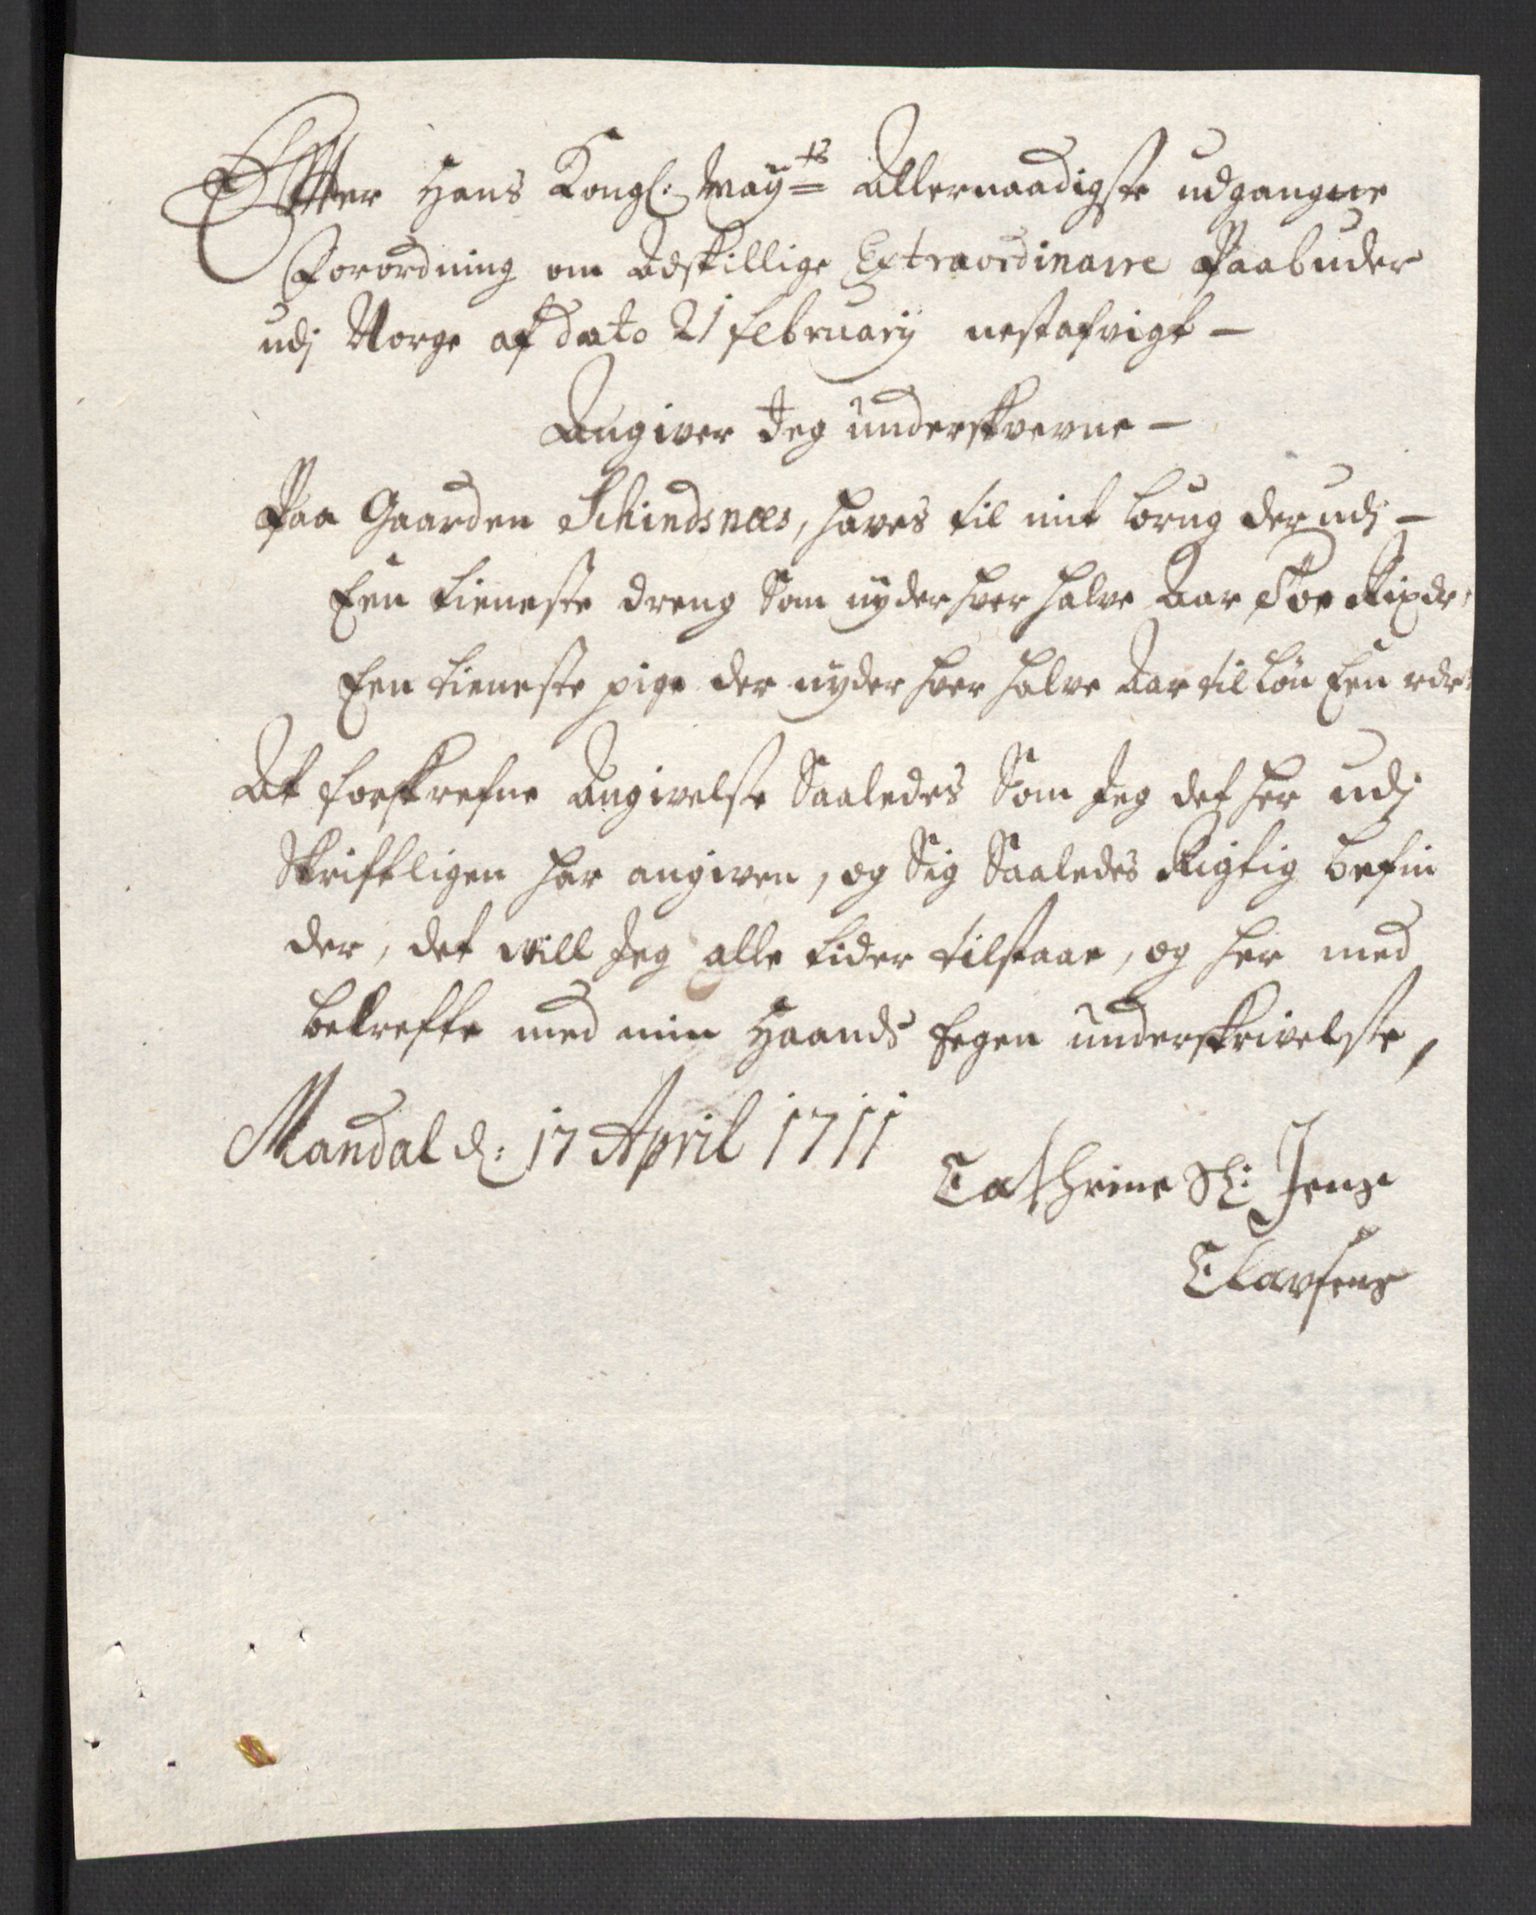 Effter Hans Kongl: May:ts Allernaadigste udgangne
Forordning om Adskillige Extraordinarie Paabuder
udj Norge af dato 21 februarij nestafvigt –
Angiver Jeg underskrevne –
Paa Gaarden Schindsnæs, haves til mit brug der udj –
Een tieneste dreng Som nyder hver halve Aar Toe Rixdr:
Een tieneste pige der nyder hver halve Aar til løn Een rdr:
At forskrefne Angivelse Saaledes Som Jeg det her udj
Skriftligen har angiven, og Sig Saaledes Rigtig befin
der, det will Jeg alle tider tilstaae, og her med
bekrefte med min Haands Eegen underskrivelse,
Mandal d: 17 April 1711
Cathrine Sl: Jens
Clavsens